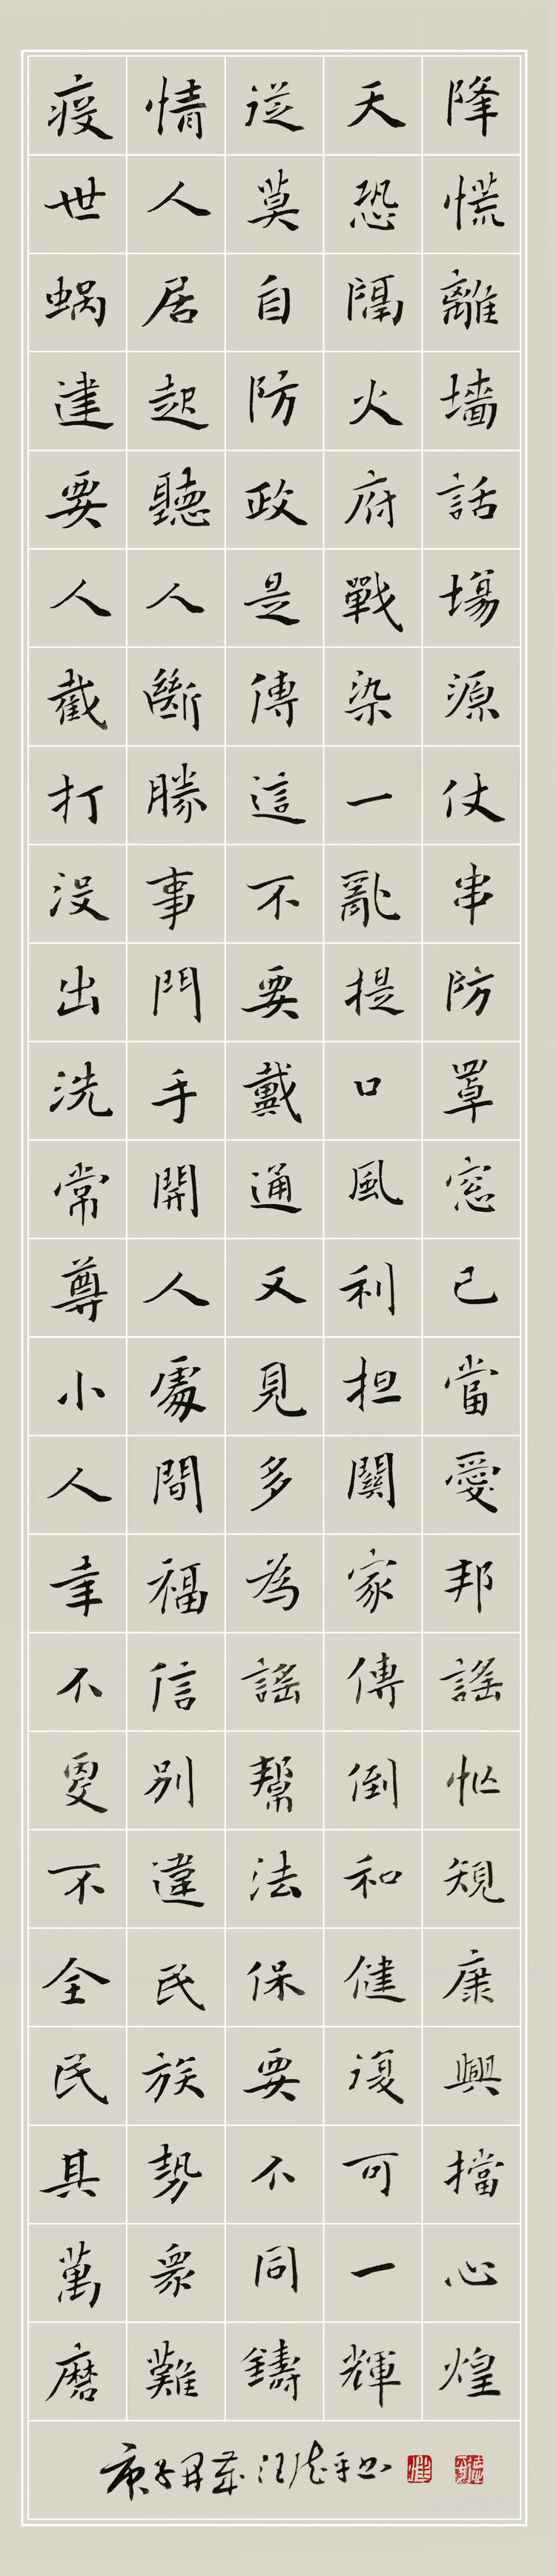 疫情從天降
世人莫恐慌
蜗居自隔離
建起防火墻
要聽政府話
人人是戰場
截斷傳染源
打勝這一仗
没事不亂串
出門要提防
洗手戴口罩
常開通風窓
尊人又利己
小處見担當
人間多關愛
幸福為家邦
不信謠傳謠
更別幫倒忙
不違法和規
全民保健康
民族要復興
其勢不可擋
萬眾同一心
磨難鑄輝煌
庚子汪德平书